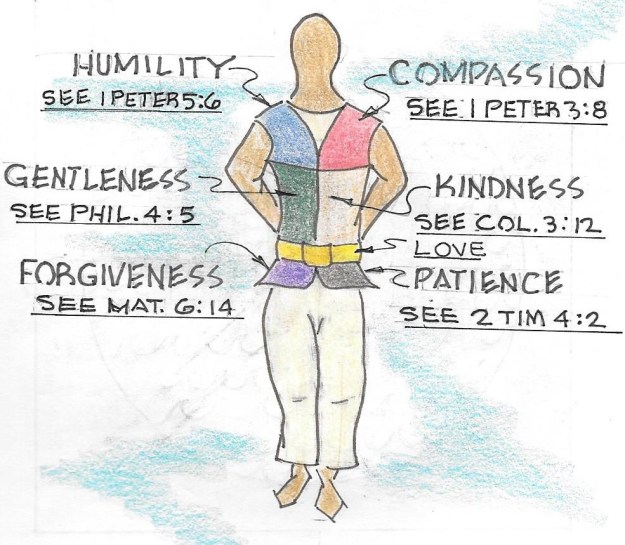 HUMILITY
SEE 1 PETER 5:6
COMPASSION
SEE 1 PETER 3:8
GENTLENESS
SEE PHIL. 4:5
KINDNESS
SEE COL. 3:12
LOVE
FORGIVENESS
SEE MAT. 6:14
PATIENCE
SEE 2 TIM 4:2